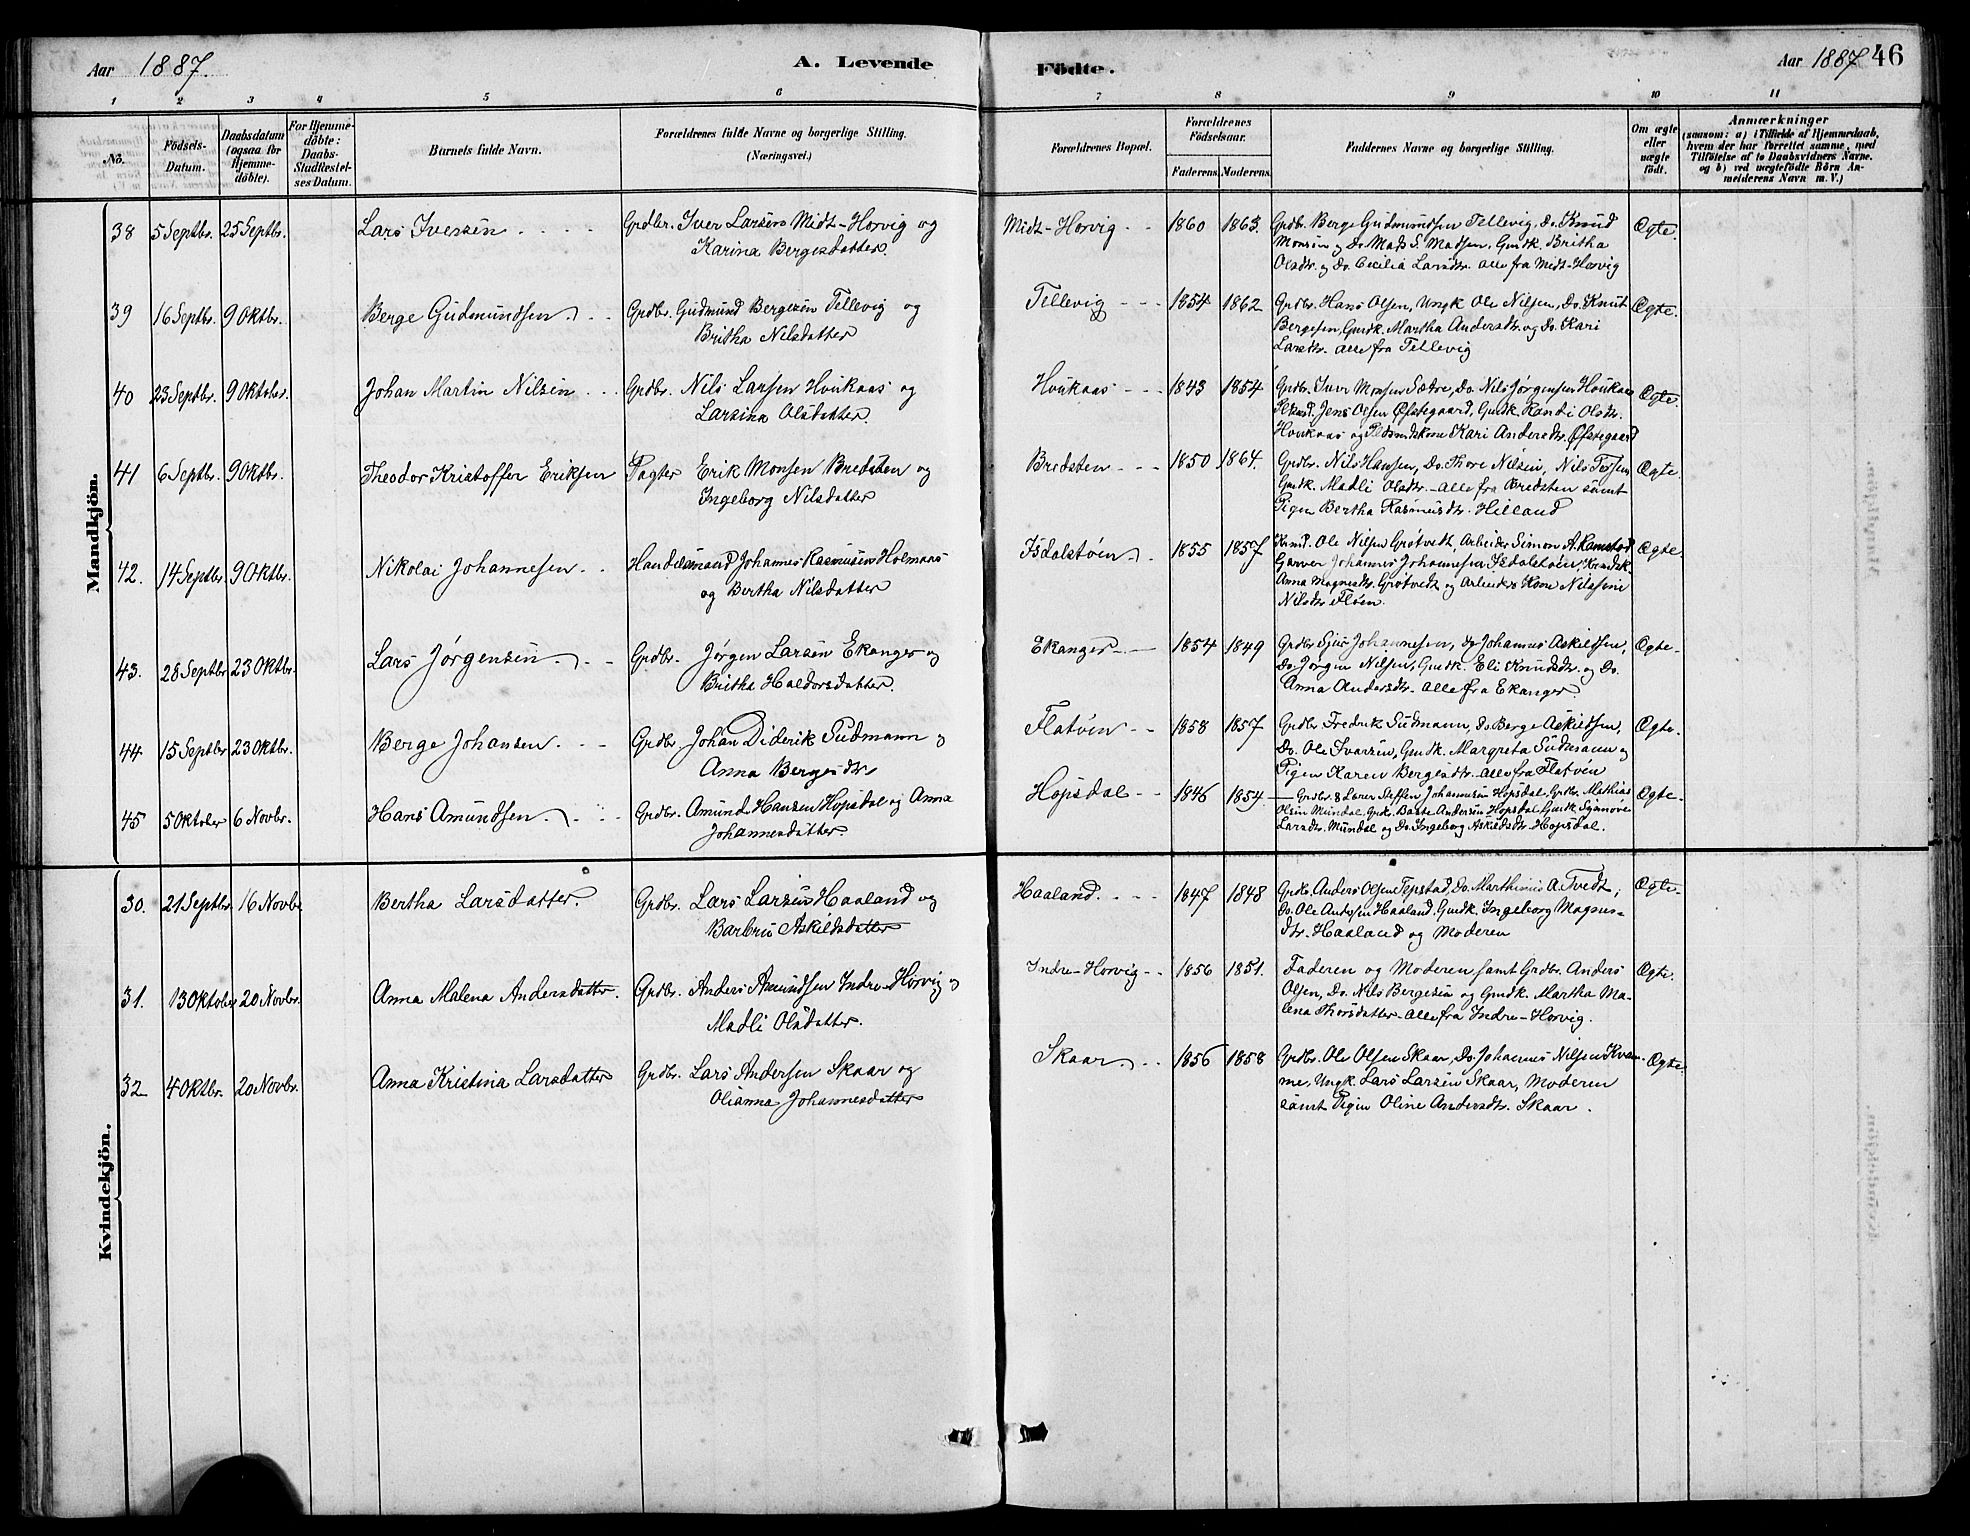 Aar 1887.
A. Levende
Födte.
Aar 1887
46
1 2 3 4 5 6 7 8 9 10 11
No.
Födsels-
Datum.
Daabsdatum
(ogsaa for
Hjemme-
döbte).
For Hjemme-
döbte:
Daabs-
Stadfæstel-
ses Datum.
Barnets fulde Navn.
Forældrenes fulde Navne og borgerlige Stilling.
(Næringsvei.)
Forældrenes Bopæl.
Forældrenes
Födselsaar.
Faderens. Moderens.
Faddernes Navne og borgerlige Stilling.
Om ægte
eller
uægte
födt.
Anmærkninger
(saasom: a) i Tilfælde af Hjemmedaab,
hvem der har forrettet samme, med
Tilföielse af to Daabsvidners Navne.
og b) ved uægtefödte Börn An-
melderens Navn m. V.)
Mandkjön.
38 5 Septbr. 25 Septbr. Lars Iversen Grdbr. Iver Larsen Midt-Horvig og
Karina Bergesdatter.
Midt-Horvig 1860 1863. Grdbr. Berge Gudmundsen Tellevig, Do. Knud
Monsen og Do. Mads S. Madsen, Gmdk. Britha
Olsdtr. og Do. Cecilia Larsdtr. alle fra Midt-Horvig
Ægte.
39 16 Septbr. 9 Oktbr. Berge Gudmundsen Grdbr. Gudmund Bergesen Tellevig og
Britha Nilsdatter
Tellevig 1854 1862 Grdbr. Hans Olsen, Ungk. Ole Nilsen, Do. Knut
Bergesen, Gmdk. Martha Andersdtr. og Do. Kari
Larsdtr. alle fra Tellevig
Ægte.
40 23 Septbr. 9 Oktober. Johan Martin Nilsen Grdbr. Nils Larsen Houkaas og
Larsina Olsdatter.
Houkaas 1843 1854 Grdbr. Iver Monsen Sætre, Do. Nils Jørgensen Houkaas
Jens Olsen Øfstegaard, Gmdk. Randi Olsdtr.
Houkaas og Kari Andersdtr. Øfstegaard
Ægte.
41 6 Septbr. 9 Oktbr. Theodor Kristoffer Eriksen Pagter Erik Monsen Bredsten og
Ingeborg Nilsdatter
Bredsten 1850 1864. Grdbr. Nils Hansen, Do. Thore Nilsen, Nils
Gmdk. Madli Olsdtr. alle fra Bredsten samt
Pigen Bertha Rasmusdtr. Hilland
Ægte
42. 14 Septbr. 9 Oktbr. Nikolai Johannesen Handelsmand Johannes Rasmusen Holmaas
og Bertha Nilsdatter
Isdalstøen 1855 1857 Ole Nilsen Grøtvedt, Arbeider Simon A. Ramstad
Garver Johannes Johannesen Isdalstøen,
Anna Magnesdtr. Grøtvedt og Arbeiders Kone Nilsine
Nilsdtr. Fløen.
Ægte.
43. 28 Septbr 23 Oktbr. Lars Jørgensen Grdbr. Jørgen Larsen Ekanger og
Britha Haldorsdatter.
Ekanger 1854 1849 Grdbr. Johannesen, Do. Johannes Askildsen,
Do. Jørgen Nilsen, Gmdk. Eli Knudsdtr. og Do.
Anna Andersdtr. alle fra Ekanger.
Ægte.
44 15 Septbr 23 Oktbr. Berge Johansen Grdbr. Johan Diderik Sudmann og
Anna Bergesdtr
Flatøen 1858 1857 Grdbr. Fredrik Sudmann, Do. Berge Askildsen,
Do. Ole Ivarsen, Gmdk. Margreta Sudmann og
Pigen Karen Bergesdtr. alle fra Flatøen
Ægte.
45 5 Oktober 6 Novbr. Hans Amundsen Grdbr. Amund Hansen Hopsdal og Anna
Johannesdatter
Hopsdal 1846 1854 Grdbr. & Lærer Steffen Johannesen Hopsdal, Grdbr. Mathias
Olsen Mundal, Grdbr. Andersen Hopsdal, Gmdk. Synnøve
Larsdtr. Mundal og Do. Ingeborg Askildsdtr. Hopsdal.
Ægte.
Kvindekjön.
30. 21 Septbr. 16 Novbr. Bertha Larsdatter. Grdbr. Lars Larsen Haaland og
Barbru Askildsdatter
Haaland. 1847 1848 Grdbr. Anders Olsen Do. Marthinus A. Tvedt,
Do. Ole Andersen Haaland, Gmdk. Ingeborg Magnus-
dtr. Haaland og Moderen
Ægte
31. 13 Oktober 20 Novbr. Anna Malena Andersdatter. Grdbr. Anders Amundsen Indre-Horvig og
Madli Olsdatter.
Indre-Horvig 1856 1851. Faderen og Moderen samt Grdbr. Anders
Olsen, Do. Nils Bergesen og Gmdk. Martha Ma-
lena Thorsdatter alle fra Indre-Horvig.
Ægte.
32 4 Oktbr. 20 Novbr. Anna Kristina Larsdatter Grdbr. Lars Andersen Skaar og
Olianna Johannesdatter
Skaar 1856 1858 Grdbr. Ole Olsen Skaar, Do. Johannes Nilsen Kvam-
me, Ungk. Lars Larsen Skaar, Moderen
samt Pigen Oline Andersdtr. Skaar.
Ægte.